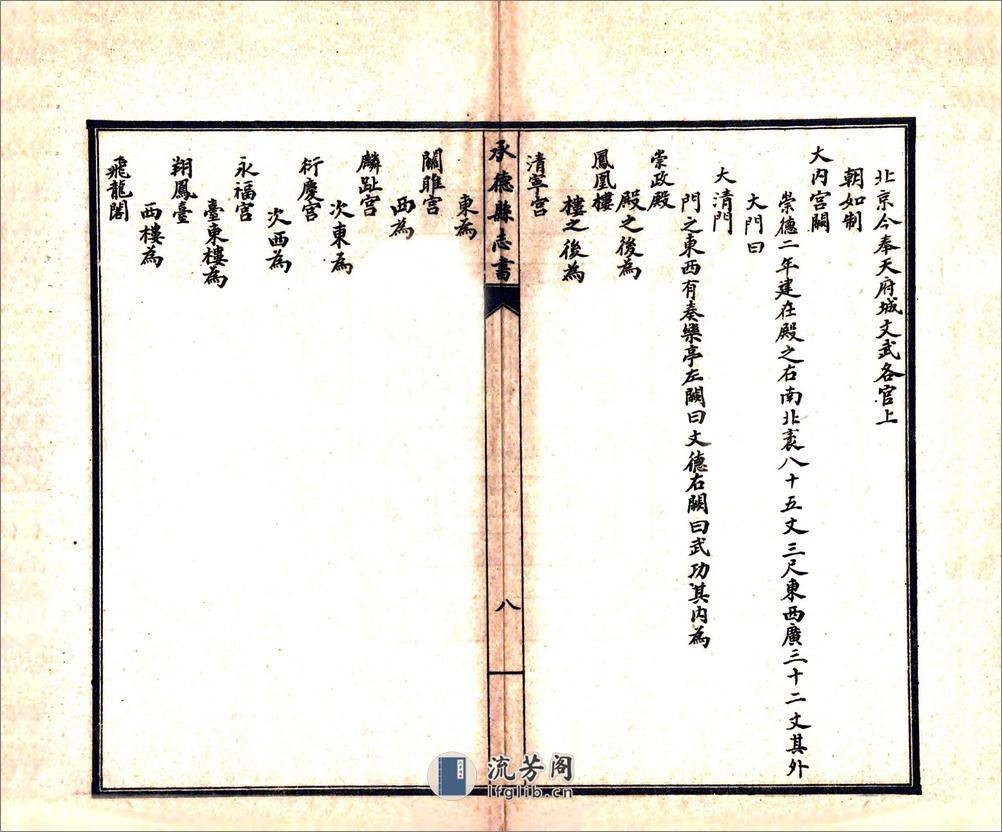 北京今奉天府城文武各官上
朝如制
大内宫闕
崇德二年建在殿之右南北袤八十五丈三尺東西廣三十二丈其外
大門曰
大清門
門之東西有奏樂亭左闕曰文德右闕曰武功其内為
崇政殿
殿之後為
鳳凰樓
樓之後為
清寧宫
承德縣志書
八
東為
關雎宫
西為
麟趾宫
次東為
衍慶宫
次西為
永福宫
臺東樓為
翔鳳臺
西樓為
飛龍閣
流芳阁
lfglib.cn